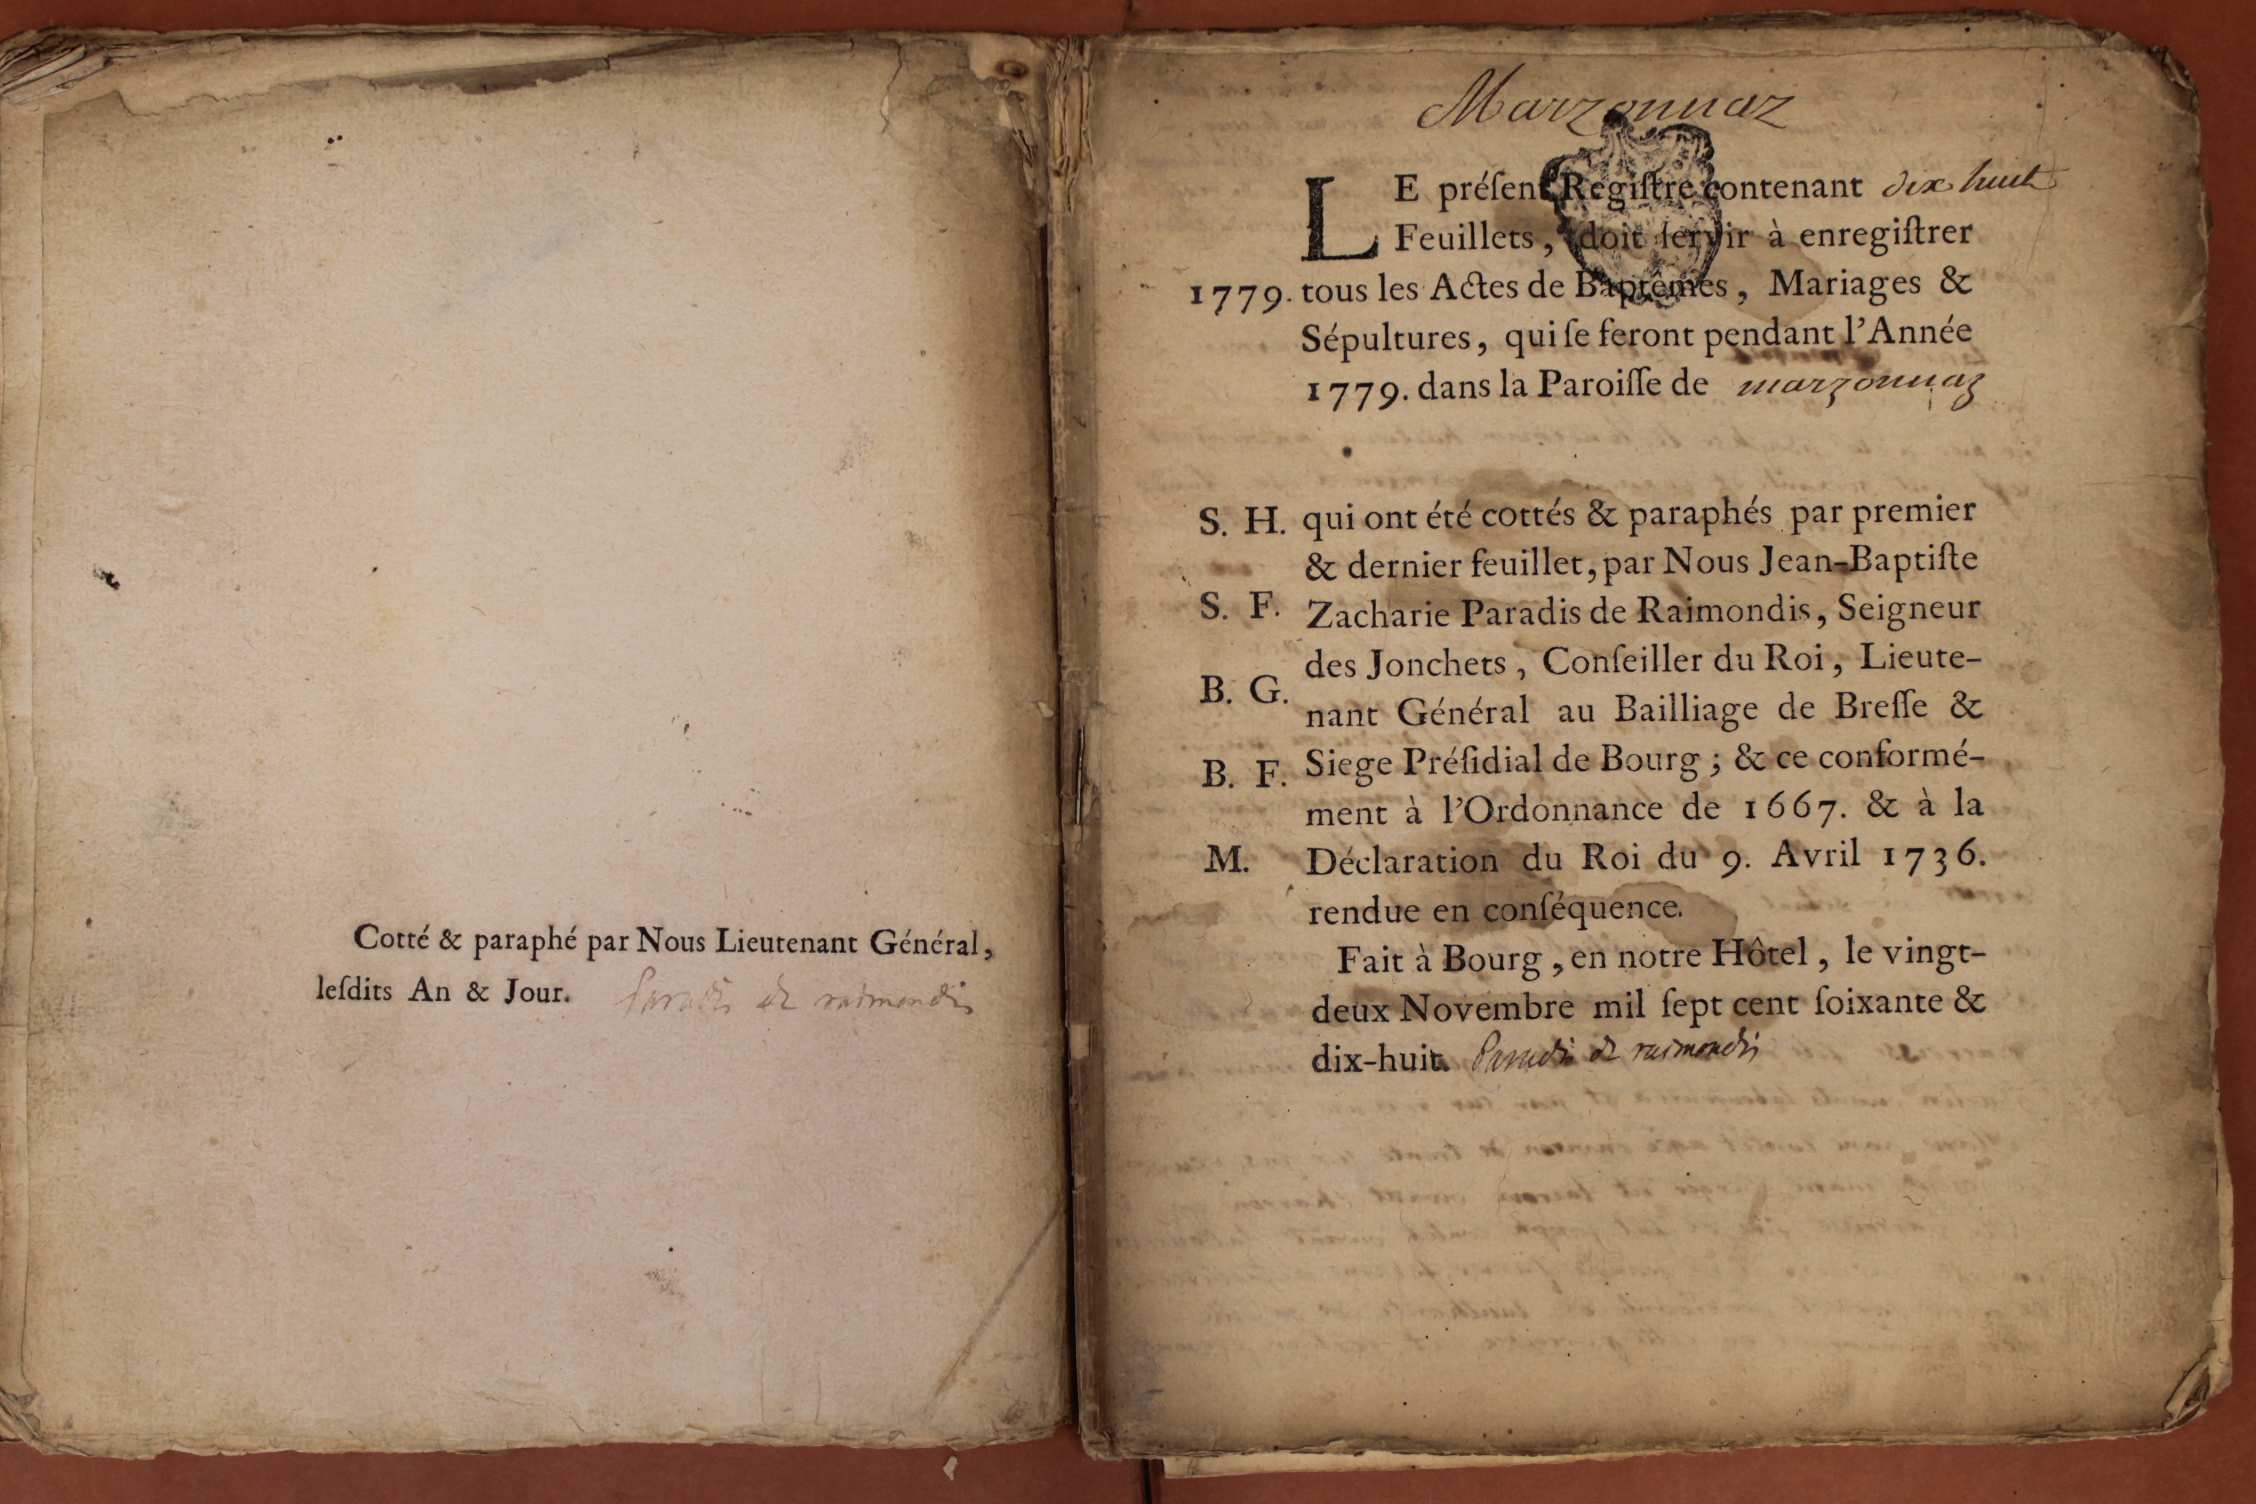 Cotté & paraphé par Nous Lieutenant Général,
leſdits An & Jour. Paradis de raimondis
Marzonnaz
LE préſent Regiſtre contenant dix huit
Feuillets, doit ſervir à enregiſtrer
1779. tous les Actes de Baptêmes, Mariages &
Sépultures, qui ſe feront pendant l'Année
1779. dans la Paroiſſe de marzonnaz
S. H. qui ont été cottés & paraphés par premier
& dernier feuillet, par Nous Jean-Baptiſte
S. F. Zacharie Paradis de Raimondis, Seigneur
des Jonchets, Conſeiller du Roi, Lieute-
B. G. nant Général au Bailliage de Breſſe &
B. F. Siege Préſidial de Bourg; & ce conformé-
ment à l'Ordonnance de 1667. & à la
M. Déclaration du Roi du 9. Avril 1736.
rendue en conſéquence.
Fait à Bourg, en notre Hôtel, le vingt-
deux Novembre mil ſept cent ſoixante &
dix-huit. Paradis de raimondis